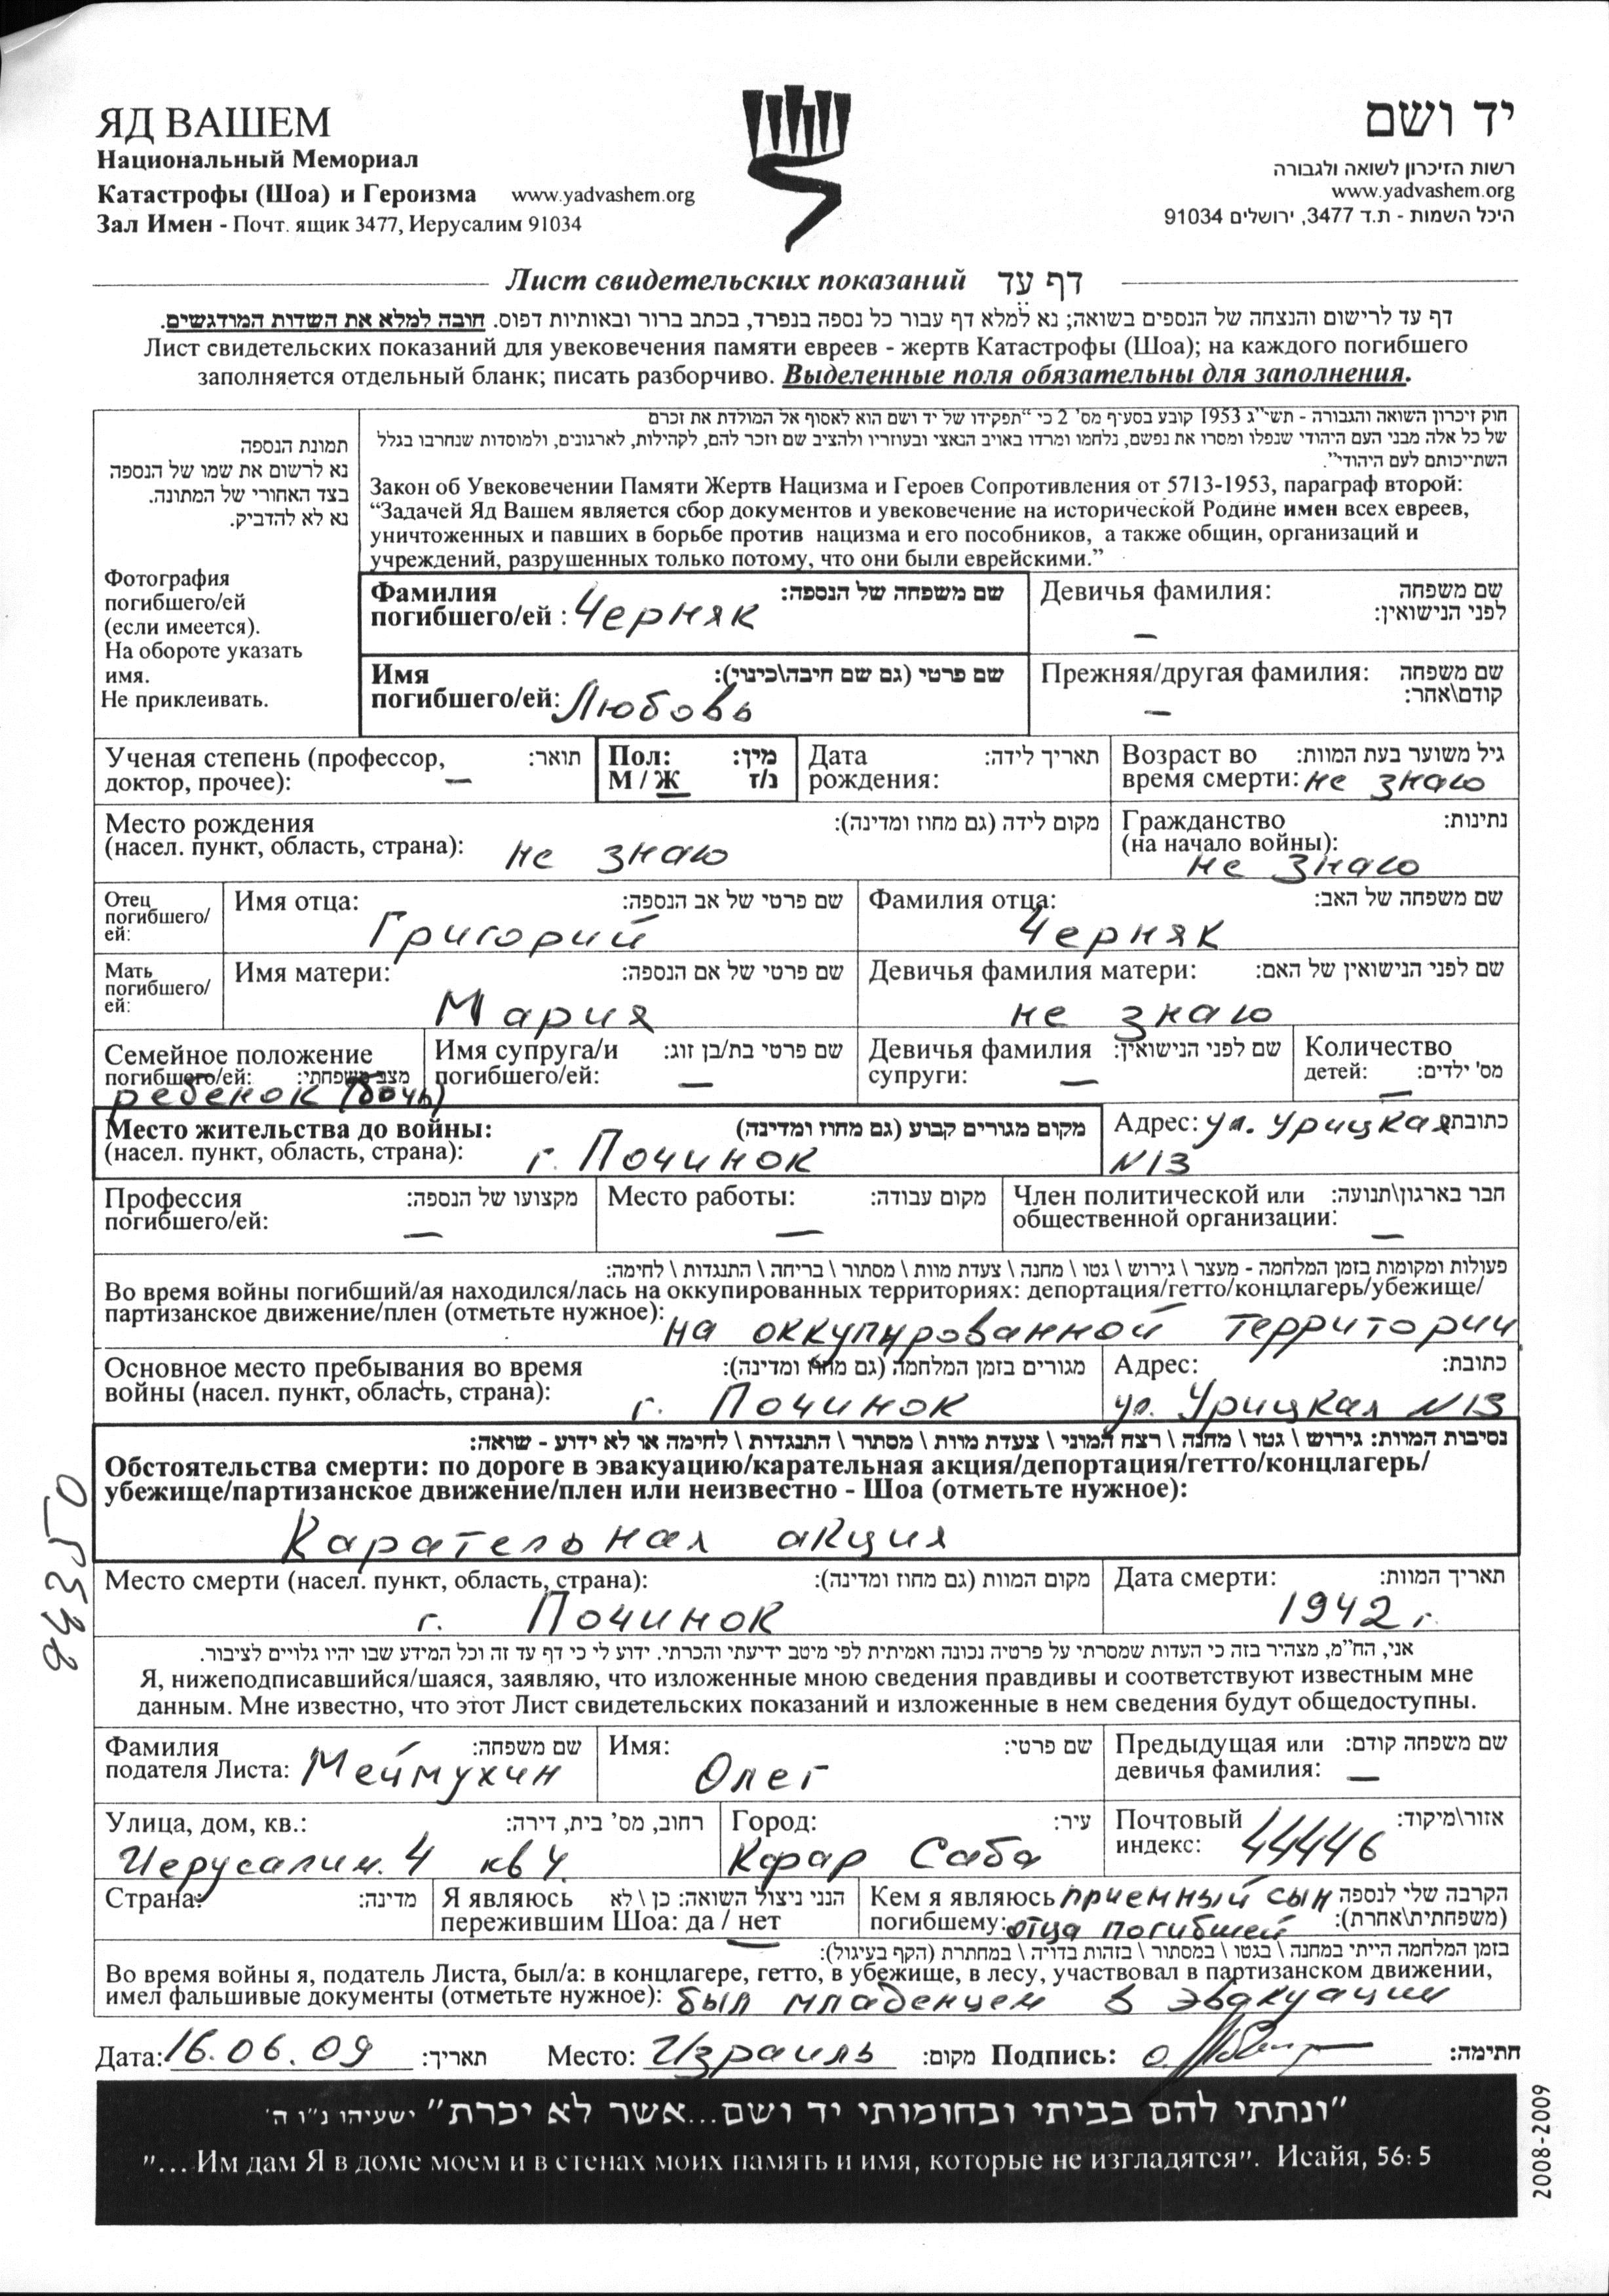 ЯД ВАШЕМ
Национальный Мемориал
Катастрофы (Шоа) и Героизма www.yadvashem.org
Зал Имен - Почт. ящик 3477, Иерусалим 91034
יד ושם
רשות הזיכרון לשואה ולגבורה
www.yadvashem.org
היכל השמות - ת.ד 3477, ירושלים 91034
Лист свидетельских показаний דף עד
דף עד לרישום והנצחה של הנספים בשואה; נא למלא דף עבור כל נספה בנפרד, בכתב ברור ובאותיות דפוס. חובה למלא את השדות המודגשים.
Лист свидетельских показаний для увековечения памяти евреев - жертв Катастрофы (Шоа); на каждого погибшего
заполняется отдельный бланк; писать разборчиво. Выделенные поля обязательны для заполнения.
תמונת הנספה
נא לרשום את שמו של הנספה
בצד האחורי של התמונה.
נא לא להדביק.
Фотография
погибшего/ей
(если имеется).
На обороте указать
имя.
Не приклеивать.
חוק זיכרון השואה והגבורה - תשי"ג 1953 קובע בסעיף מס' 2 כי "תפקידו של יד ושם הוא לאסוף אל המולדת את זכרם
של כל אלה מבני העם היהודי שנפלו ומסרו את נפשם, נלחמו ומרדו באויב הנאצי ובעוזריו ולהציב שם וזכר להם, לקהילות, לארגונים, ולמוסדות שנחרבו בגלל
השתייכותם לעם היהודי".
Закон об Увековечении Памяти Жертв Нацизма и Героев Сопротивления от 5713-1953, параграф второй:
"Задачей Яд Вашем является сбор документов и увековечение на исторической Родине имен всех евреев,
уничтоженных и павших в борьбе против нацизма и его пособников, а также общин, организаций и
учреждений, разрушенных только потому, что они были еврейскими."
Фамилия שם משפחה של הנספה:
погибшего/ей : Черняк
Девичья фамилия: שם משפחה
לפני הנישואין:
–
Имя שם פרטי (גם שם חיבה\כינוי):
погибшего/ей: Любовь
Прежняя/другая фамилия: שם משפחה
קודם\אחר:
–
Ученая степень (профессор, תואר:
доктор, прочее): –
Пол: מין:
М / Ж נ/ז
Дата תאריך לידה:
рождения:
Возраст во גיל משוער בעת המוות:
время смерти: не знаю
Место рождения מקום לידה (גם מחוז ומדינה):
(насел. пункт, область, страна): не знаю
Гражданство נתינות:
(на начало войны):
не знаю
Отец
погибшего/
ей:
Имя отца: שם פרטי של אב הנספה:
Григорий
Фамилия отца: שם משפחה של האב:
Черняк
Мать
погибшего/
ей:
Имя матери: שם פרטי של אם הנספה:
Мария
Девичья фамилия матери: שם לפני הנישואין של האם:
не знаю
Семейное положение
погибшего/ей: מצב משפחתי:
ребенок (дочь)
Имя супруга/и שם פרטי בת/בן זוג:
погибшего/ей: –
Девичья фамилия שם לפני הנישואין:
супруги: –
Количество
детей: מס' ילדים:
–
Место жительства до войны: מקום מגורים קבוע (גם מחוז ומדינה)
(насел. пункт, область, страна): г. Починок
Адрес: ул. Урицкая כתובת:
N13
Профессия מקצועו של הנספה:
погибшего/ей: –
Место работы: מקום עבודה:
–
Член политической или חבר בארגון\תנועה:
общественной организации: –
פעולות ומקומות בזמן המלחמה - מעצר \ גירוש \ גטו \ מחנה \ צעדת מוות \ מסתור \ בריחה \ התנגדות \ לחימה:
Во время войны погибший/ая находился/лась на оккупированных территориях: депортация/гетто/концлагерь/убежище/
партизанское движение/плен (отметьте нужное): на оккупированной территории
Основное место пребывания во время מגורים בזמן המלחמה (גם מחוז ומדינה):
войны (насел. пункт, область, страна): г. Починок
Адрес: כתובת:
ул. Урицкая N13
נסיבות המוות: גירוש \ גטו \ מחנה \ רצח המוני \ צעדת מוות \ מסתור \ התנגדות \ לחימה או לא ידוע - שואה:
Обстоятельства смерти: по дороге в эвакуацию/карательная акция/депортация/гетто/концлагерь/
убежище/партизанское движение/плен или неизвестно - Шоа (отметьте нужное):
Карательная акция
Место смерти (насел. пункт, область, страна): מקום המוות (גם מחוז ומדינה):
г. Починок
Дата смерти: תאריך המוות:
1942 г.
אני, הח"מ, מצהיר בזה כי העדות שמסרתי על פרטיה נכונה ואמיתית לפי מיטב ידיעתי והכרתי. ידוע לי כי דף עד זה וכל המידע שבו יהיו גלויים לציבור.
Я, нижеподписавшийся/шаяся, заявляю, что изложенные мною сведения правдивы и соответствуют известным мне
данным. Мне известно, что этот Лист свидетельских показаний и изложенные в нем сведения будут общедоступны.
Фамилия שם משפחה:
подателя Листа: Меймухин
Имя: שם פרטי:
Олег
Предыдущая или שם משפחה קודם:
девичья фамилия: –
Улица, дом, кв.: רחוב, מס' בית, דירה:
Иерусалим. 4 кв 4
Город: עיר:
Кфар Саба
Почтовый אזור\מיקוד:
индекс: 44446
Страна: מדינה:
Я являюсь הנני ניצול השואה: כן \ לא
пережившим Шоа: да / нет
Кем я являюсь приемный сын הקרבה שלי לנספה
погибшему: отца погибшей (משפחתית\אחרת):
בזמן המלחמה הייתי במחנה \ בגטו \ במסתור \ בזהות בדויה \ במחתרת (הקף בעיגול):
Во время войны я, податель Листа, был/а: в концлагере, гетто, в убежище, в лесу, участвовал в партизанском движении,
имел фальшивые документы (отметьте нужное): был младенцем в эвакуации
Дата: 16.06.09 תאריך: Место: Израиль מקום: Подпись: חתימה:
"ונתתי להם בביתי ובחומותי יד ושם...אשר לא יכרת" ישעיהו נ"ו ה'
"... Им дам Я в доме моем и в стенах моих память и имя, которые не изгладятся". Исайя, 56: 5
2008-2009